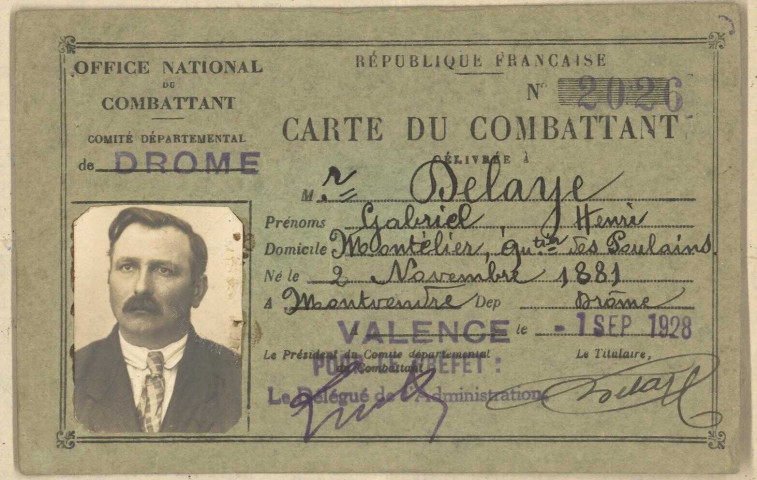 OFFICE NATIONAL
DU
COMBATTANT
COMITÉ DÉPARTEMENTAL
de DROME
RÉPUBLIQUE FRANÇAISE
N° 2026
CARTE DU COMBATTANT
DÉLIVRÉE À
M. r Delaye
Prénoms Gabriel, Henri
Domicile Montélier, qu.tier des Poulains
Né le 2 Novembre 1881
A Montvendre Dep Drôme
VALENCE le - 1 SEP 1928
Le Président du Comité départemental
du Combattant,
Le Titulaire,
POUR LE PREFET :
Le Délégué de l'Administration
Delaye